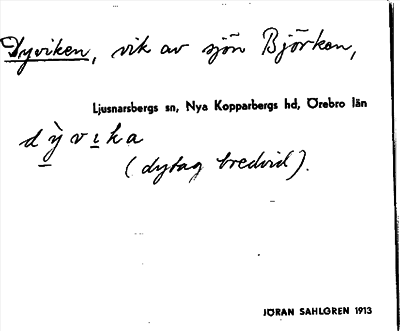 Dyviken, vik av sjön Björken,
Ljusnarsbergs sn, Nya Kopparbergs hd, Örebro län
dỳvıka
(dytag bredvid).
JÖRAN SAHLGREN 1913